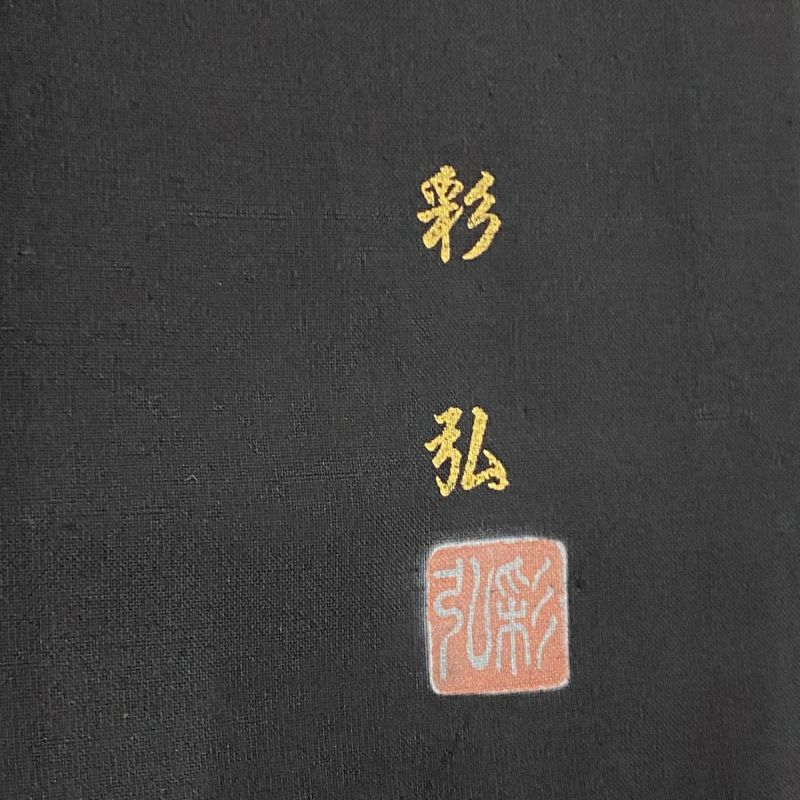 彩弘
彩弘